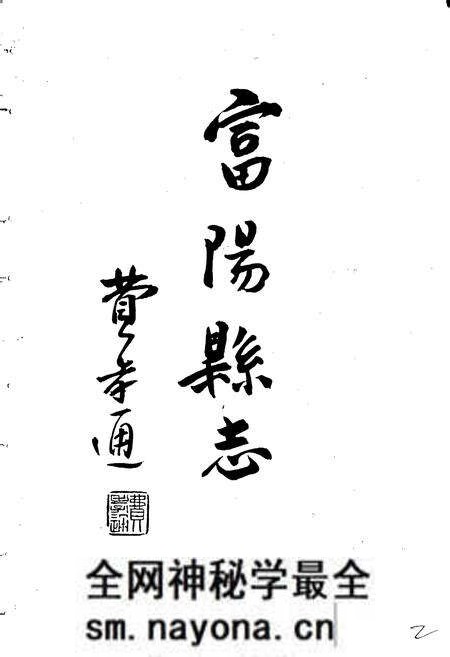 富陽縣志
費孝通
全网神秘学最全
sm.nayona.cn
2